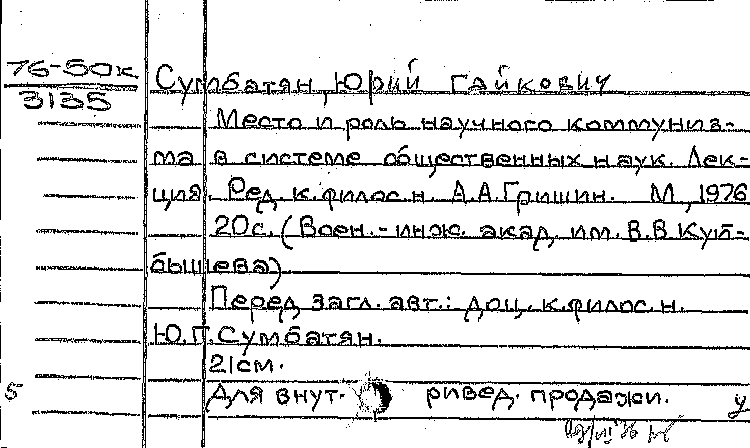 76-50к
3135
Сумбатян, Юрий Гайкович
Место и роль научного коммуниз-
ма в системе общественных наук. Лек-
ция. Ред. к.филос.н. А.А.Гришин. М, 1976
20с. (Воен.-инж. акад. им. В.В Куй-
бышева)
Перед загл. авт.: доц. к.филос.н.
Ю.Г.Сумбатян.
21см.
5 Для внут. ривед. продажи. у